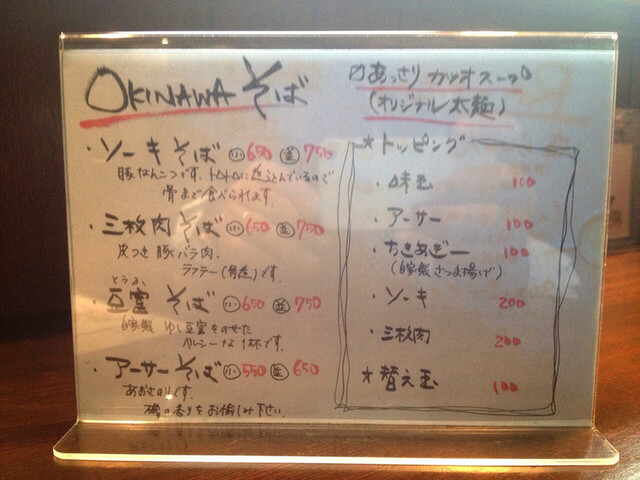 OKINAWA そば
・ソーキそば 小 650 並 750
豚なんこつです。トロトロに煮込んでいるので
骨まで食べられます。
・三枚肉そば 小 650 並 750
皮つき豚バラ肉、
ラフテー(角煮)です。
とうふ
・豆富 そば 小 650 並 750
自家製 ゆし豆富をのせた
ヘルシーな1杯です。
・アーサそば 小 550 並 650
あおさのりです。
磯の香りをお愉しみ下さい。
あっさりカツオスープ
(オリジナル太麺)
★トッピング
・味玉 100
・アーサー 100
・ちきあぎー 100
(自家製さつま揚げ)
・ソーキ 200
・三枚肉 200
★替え玉 100